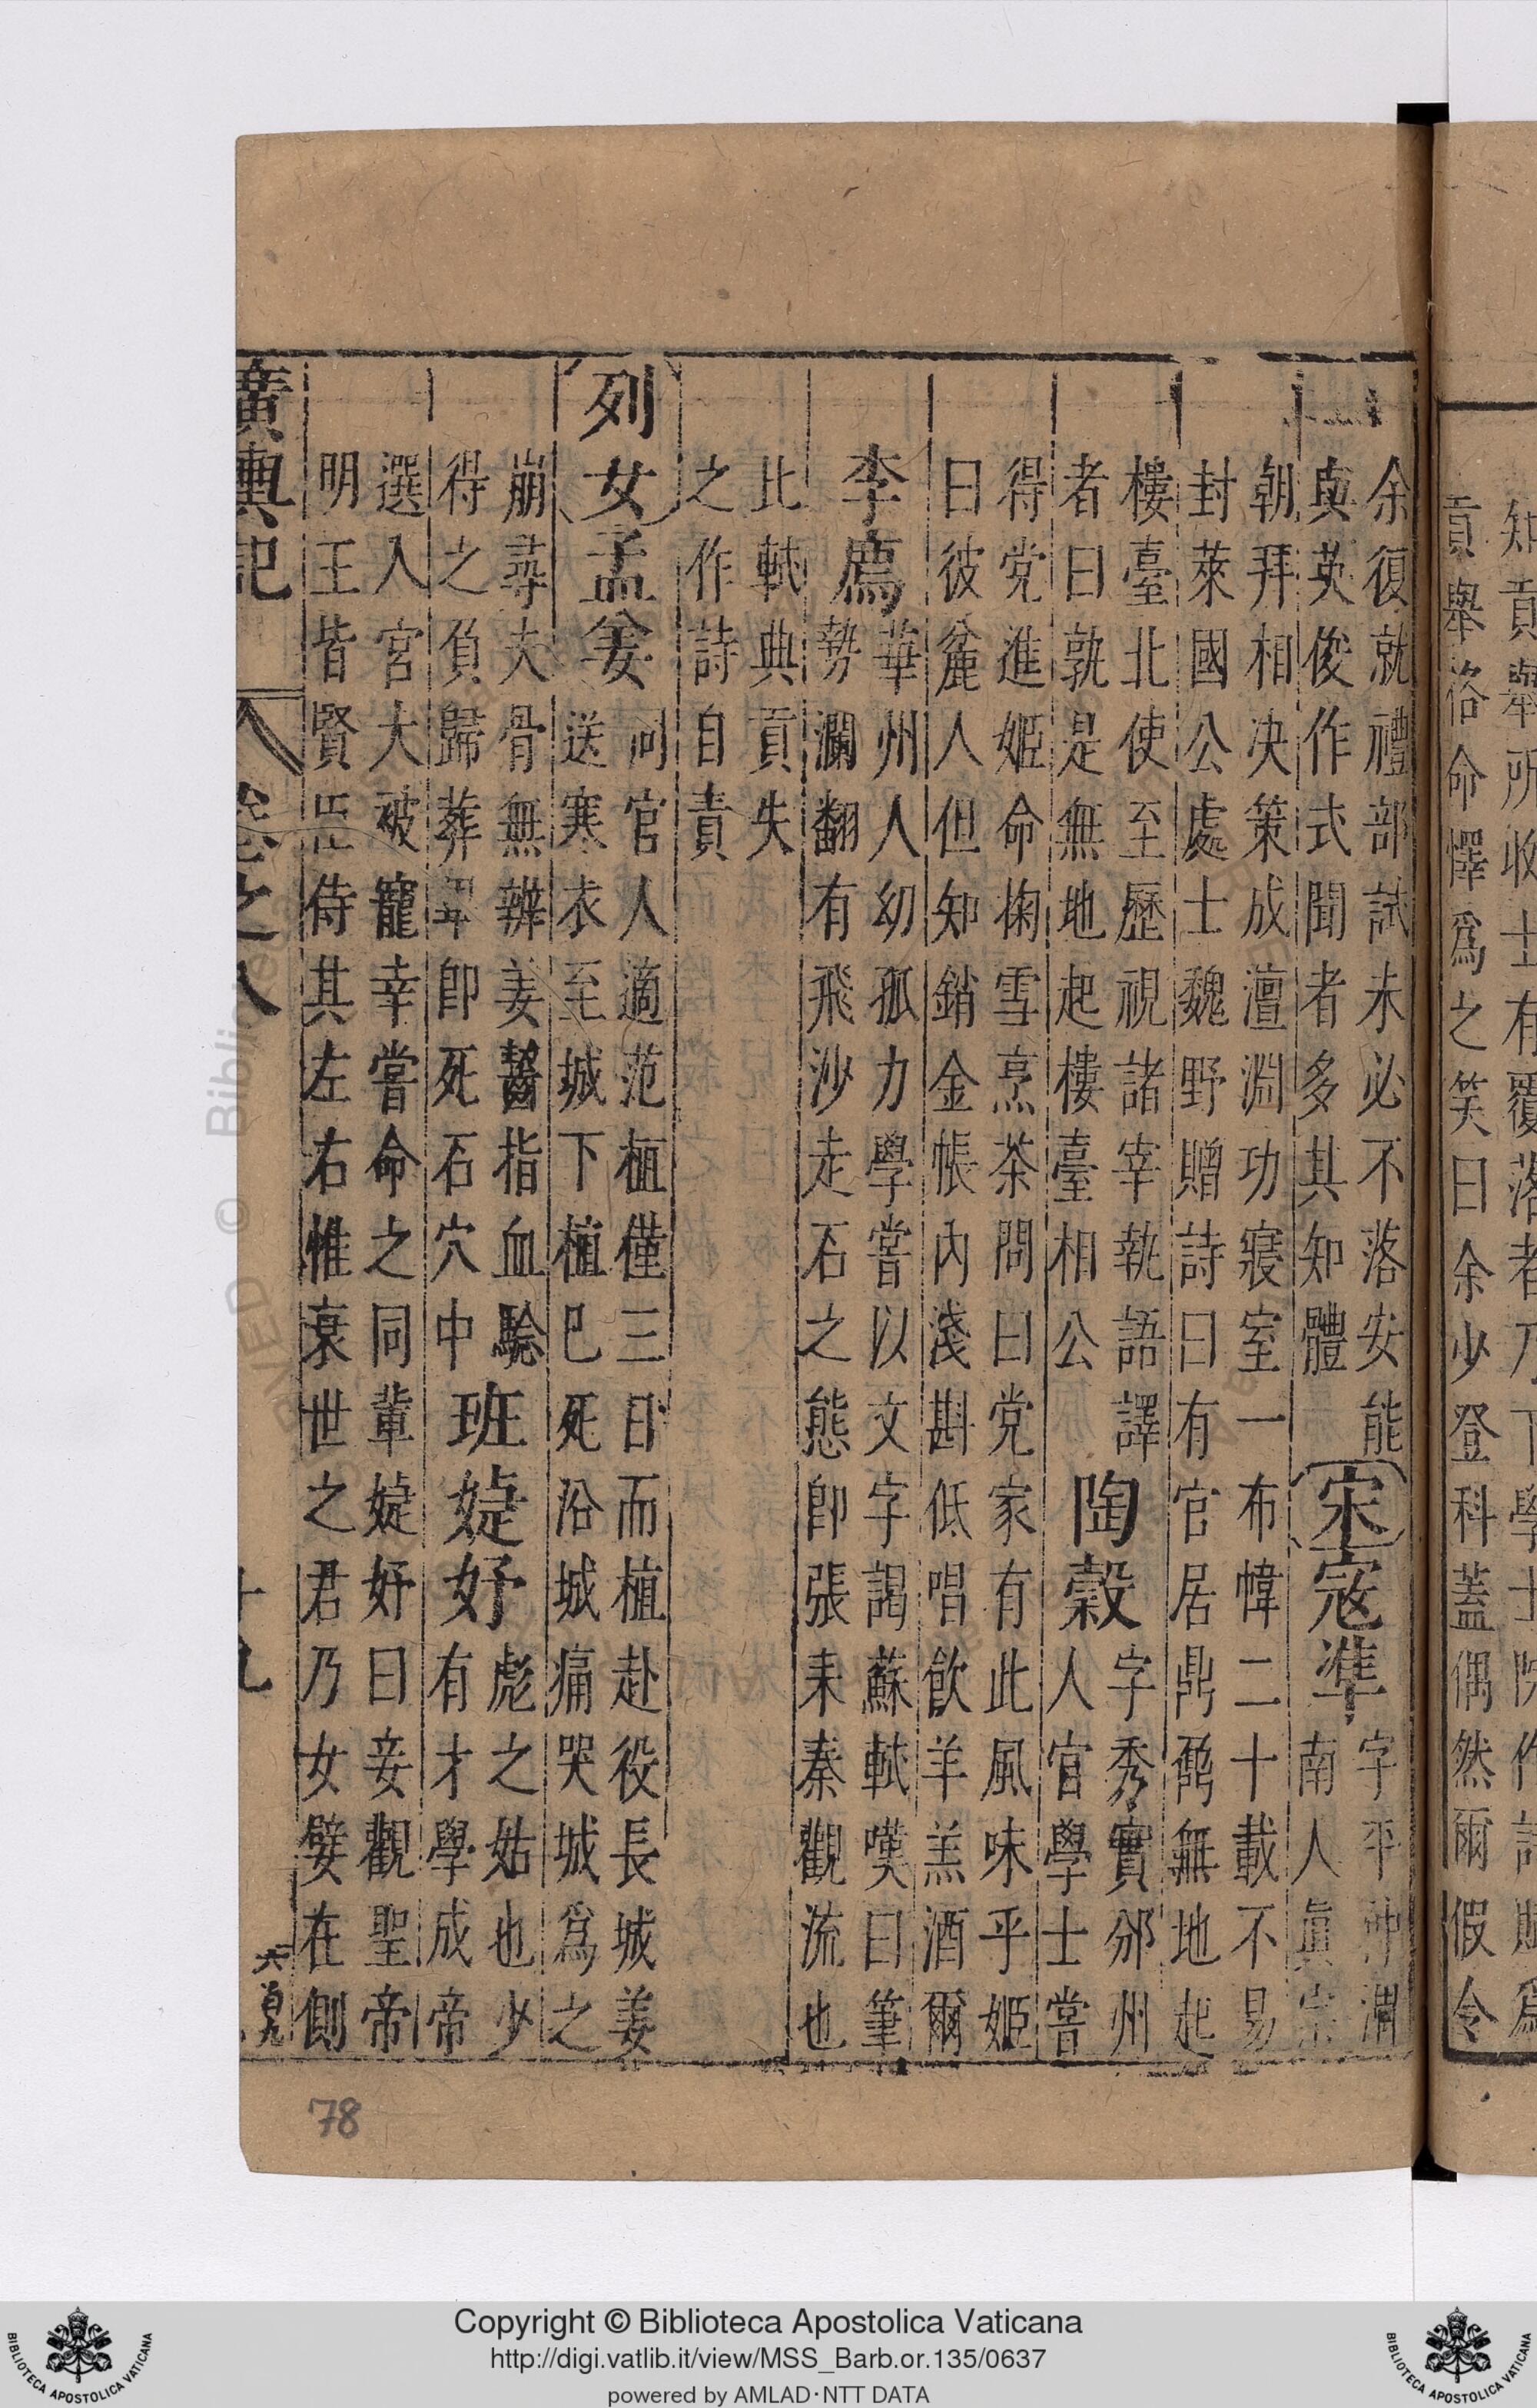 知貢舉所收士有覆落者乃下學士院作詩賦爲
貢舉格命懌爲之笑曰余少登科蓋偶然爾假令
余復就禮部試未必不落安能
與英俊作式聞者多其知體
宋
寇準
字平仲渭
南人眞宗
朝拜相决策成澶淵功寢室一布幃二十載不易
封萊國公處士魏野贈詩曰有官居鼎鼐無地起
樓臺北使至歷視諸宰執語譯
者曰孰是無地起樓臺相公
陶穀
字秀實邠州
人官學士嘗
得党進姬命掬雪烹茶問曰党家有此風味乎姬
曰彼麄人但知銷金帳內淺斟低唱飲羊羔酒爾
李廌
華州人幼孤力學嘗以文字謁蘇軾嘆曰筆
勢瀾翻有飛沙走石之態卽張耒秦觀流也
此軾典貢失
之作詩自責
列女
孟姜
同官人適范植僅三日而植赴役長城姜
送寒衣至城下植巳死沿城痛哭城爲之
崩尋夫骨無辨姜齧指血驗
得之負歸葬畢卽死石穴中
班婕妤
彪之姑也少
有才學成帝
選入宮大被寵幸嘗命之同輦婕妤曰妾觀聖帝
明王皆賢臣侍其左右惟衰世之君乃女嬖在側
廣輿記
卷之八
十九
78
© Biblioteca Apostolica Vaticana
Copyright © Biblioteca Apostolica Vaticana
http://digi.vatlib.it/view/MSS_Barb.or.135/0637
powered by AMLAD·NTT DATA
BIBLIOTECA APOSTOLICA VATICANA
BIBLIOTECA APOSTOLICA VATICANA